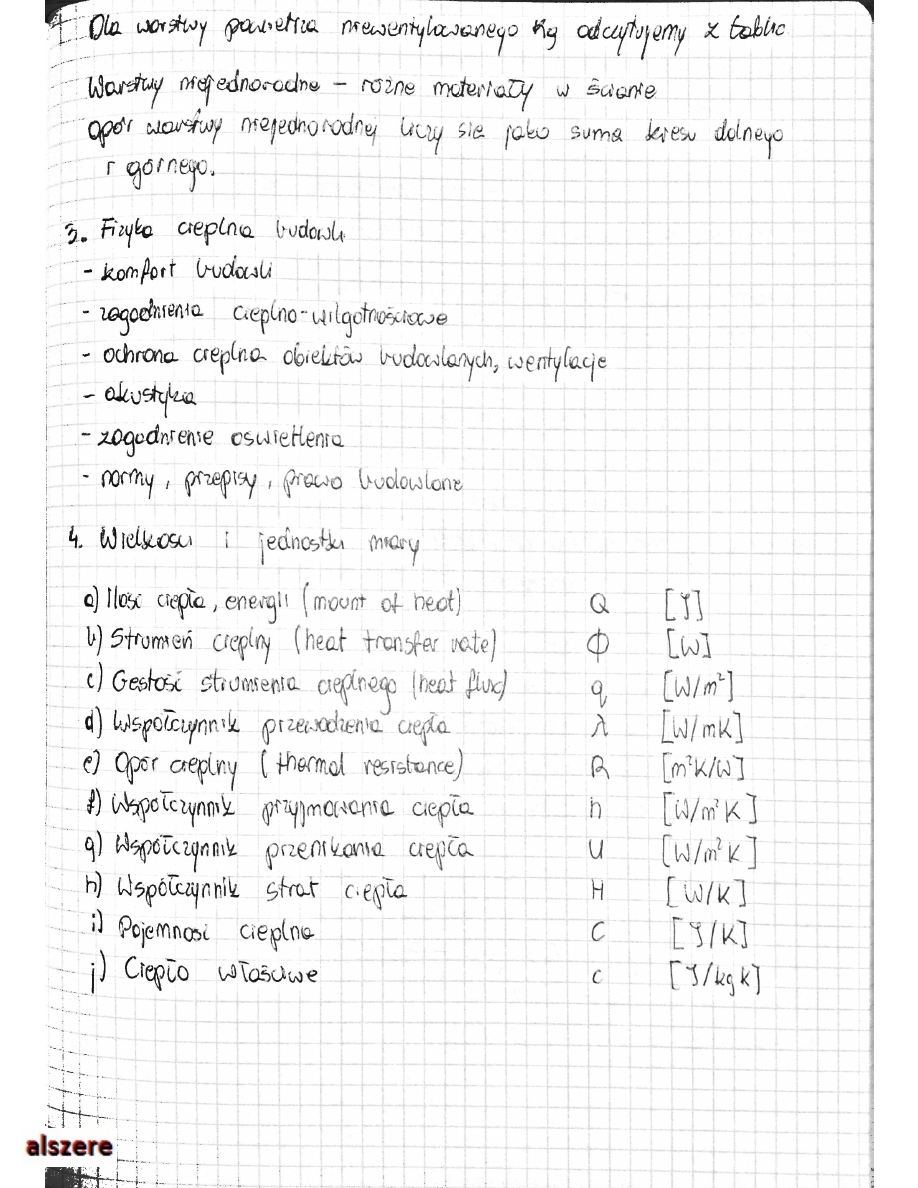 Dla warstwy powietrza niewentylowanego Rg odczytujemy z tablic
Warstwy niejednorodne – różne materiały w ścianie
opór warstwy niejednorodnej liczy sie jako suma kresu dolnego
i górnego.
3. Fizyka cieplna budowli
- komfort budowli
- zagadnienia cieplno-wilgotnościowe
- ochrona cieplna obiektów budowlanych, wentylacje
- akustyka
- zagadnienie oswietlenia
- normy, przepisy, prawo budowlane
4. Wielkosci i jednostki miary
a) Ilość ciepła, energii (mount of heat) Q [J]
b) Strumień cieplny (heat transfer rate) Φ [W]
c) Gestość strumienia cieplnego (heat flux) q [W/m²]
d) Współczynnik przewodzenia ciepła λ [W/mK]
e) Opór cieplny (thermal resistance) R [m²K/W]
f) Współczynnik przyjmowania ciepła h [W/m²K]
g) Współczynnik przenikania ciepła U [W/m²K]
h) Współczynnik strat ciepła H [W/K]
i) Pojemność cieplna C [J/K]
j) Ciepło właściwe c [J/kgK]
alszere